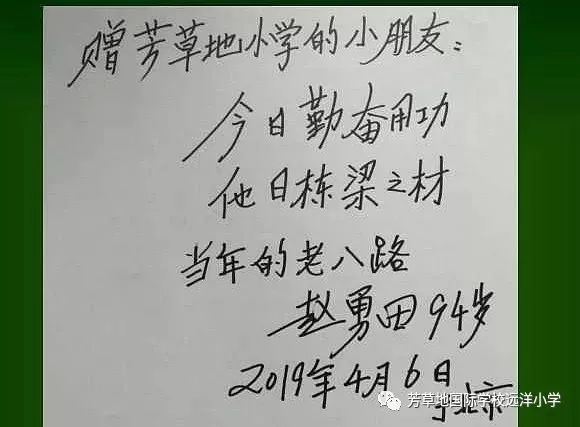 赠芳草地小学的小朋友：
今日勤奋用功
他日栋梁之材
当年的老八路
赵勇田94岁
2019年4月6日
于北京
芳草地国际学校远洋小学